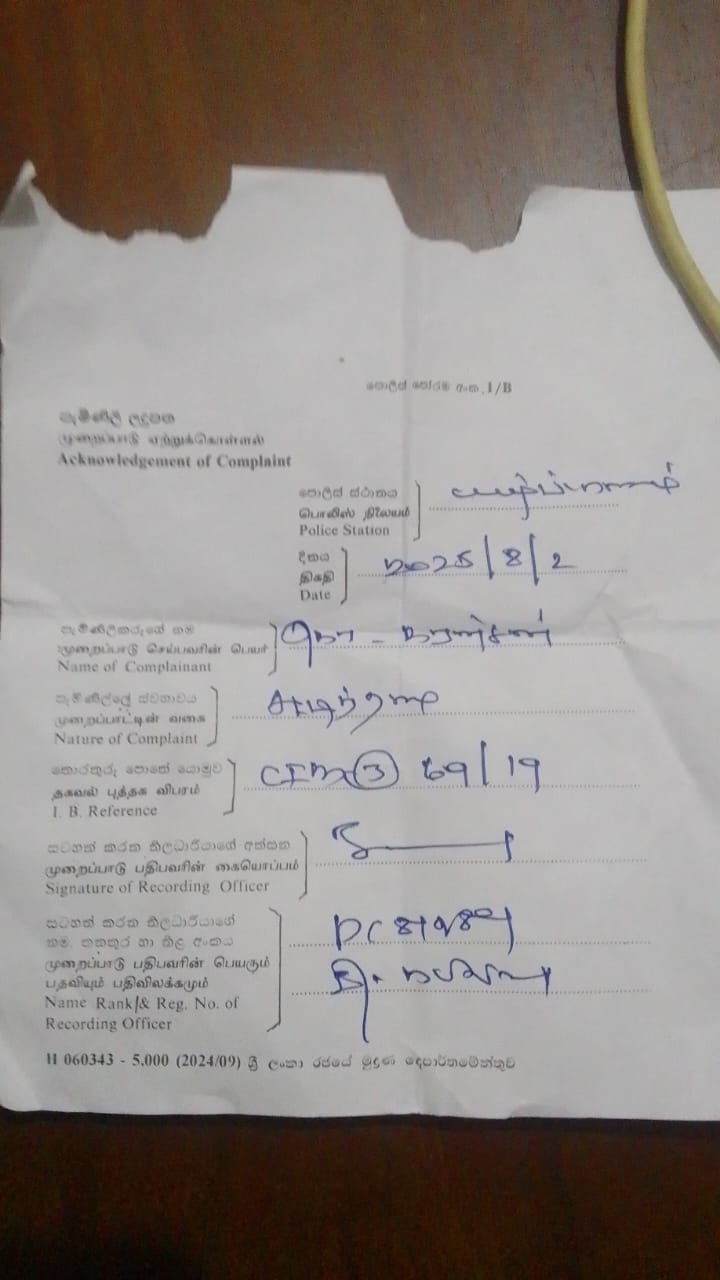 පොලිස් පෝරම අංක. 1/B
පැමිණිලි ලදුපත
முறைப்பாடு ஏற்றுக்கொள்ளல்
Acknowledgement of Complaint
පොලිස් ස්ථානය
பொலிஸ் நிலையம் யாழ்ப்பாணம்
Police Station
දිනය
திகதி 2025/8/2
Date
පැමිණිලිකරුගේ නම
முறைப்பாடு செய்பவரின் பெயர்
Name of Complainant
පැමිණිල්ලේ ස්වභාවය
முறைப்பாட்டின் வகை
Nature of Complaint
තොරතුරු පොතේ යොමුව
தகவல் புத்தக விபரம் CIB (3) 69/19
I. B. Reference
සටහන් කරන නිලධාරියාගේ අත්සන
முறைப்பாடு பதிபவரின் கையொப்பம்
Signature of Recording Officer
සටහන් කරන නිලධාරියාගේ
නම, තනතුර හා නිළ අංකය PC
முறைப்பாடு பதிபவரின் பெயரும்
பதவியும் பதிவிலக்கமும்
Name Rank & Reg. No. of
Recording Officer
H 060343 - 5,000 (2024/09) ශ්‍රී ලංකා රජයේ මුද්‍රණ දෙපාර්තමේන්තුව